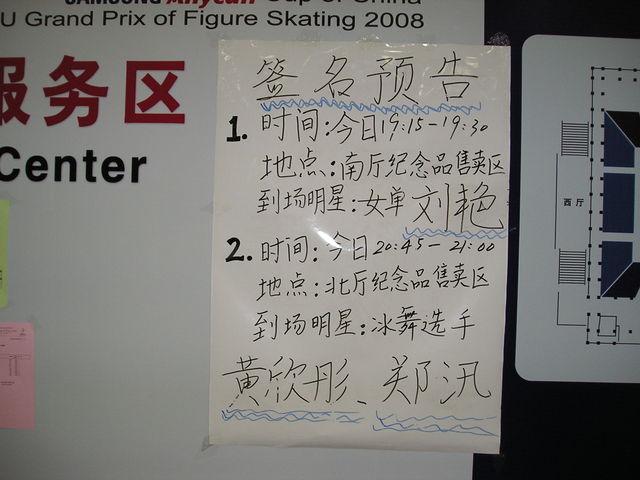 SAMSUNG Anycall Cup of China
U Grand Prix of Figure Skating 2008
服务区
Center
签名预告
1. 时间:今日19:15-19:30
地点:南厅纪念品售卖区
到场明星:女单刘艳
2. 时间:今日20:45-21:00
地点:北厅纪念品售卖区
到场明星:冰舞选手
黄欣彤、郑汛
西厅